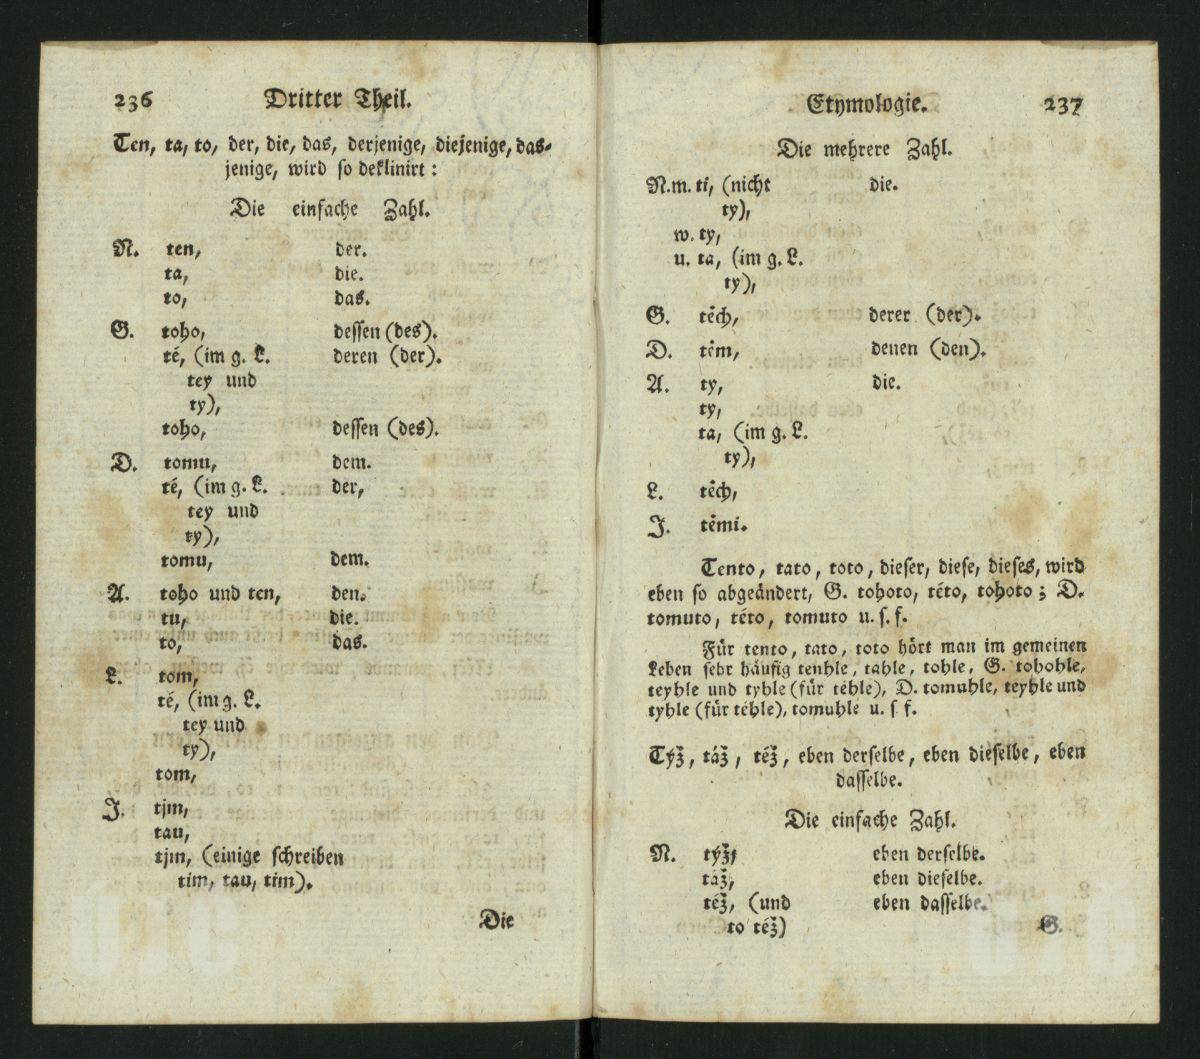 236 Dritter Theil.
Ten, ta, to, der, die, das, derjenige, diejenige, das-
jenige, wird so deklinirt:
Die einfache Zahl.
N. ten, der.
ta, die.
to, das.
G. toho, dessen (des).
té, (im g. L. deren (der).
tey und
ty),
toho, dessen (des).
D. tomu, dem.
té, (im g. L. der,
tey und
ty),
tomu, dem.
A. toho und ten, den.
tu, die.
to, das.
L. tom,
té, (im g. L.
tey und
ty),
tom,
J. tjm,
tau,
tjm, (einige schreiben
tim, tau, tim).
Die
Etymologie. 237
Die mehrere Zahl.
N. m. ti, (nicht die.
ty),
w. ty,
u. ta, (im g. L.
ty),
G. těch, derer (der).
D. těm, denen (den).
A. ty, die.
ty,
ta, (im g. L.
ty),
L. těch,
J. těmi.
Tento, tato, toto, dieser, diese, dieses, wird
eben so abgeändert, G. tohoto, této, tohoto; D.
tomuto, této, tomuto u. s. f.
Für tento, tato, toto hört man im gemeinen
Leben sehr häufig tenhle, tahle, tohle, G. tohohle,
teyhle und tyhle (für téhle), D. tomuhle, teyhle und
tyhle (für téhle), tomuhle u. s f.
Týž, táž, též, eben derselbe, eben dieselbe, eben
dasselbe.
Die einfache Zahl.
N. týž, eben derselbe.
táž, eben dieselbe.
též, (und eben dasselbe.
to též)
G.